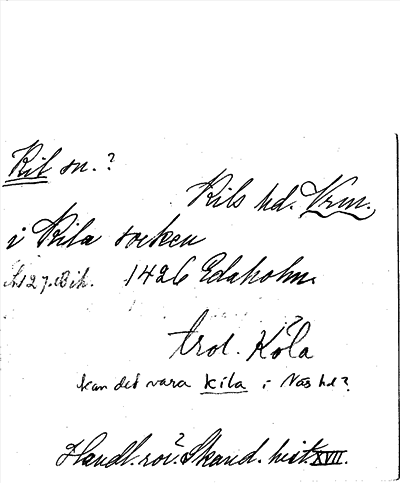 Kil sn.?
Kils hd. Vrm.
i Kila socken
1426 Edaholm.
trol. Köla?
kan det vara Kila i Näs hd?
Handl. rör. Skand. hist. XVII.